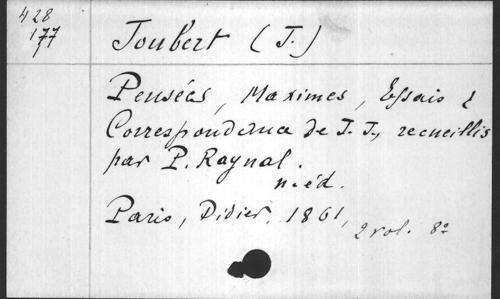 428
177
7
Joubert (J.)
Pensées, Maximes, Essais &
Correspondance de J. J., recueillis
par P. Raynal.
n. éd.
Paris, Didier, 1861, 2 vol. 8º